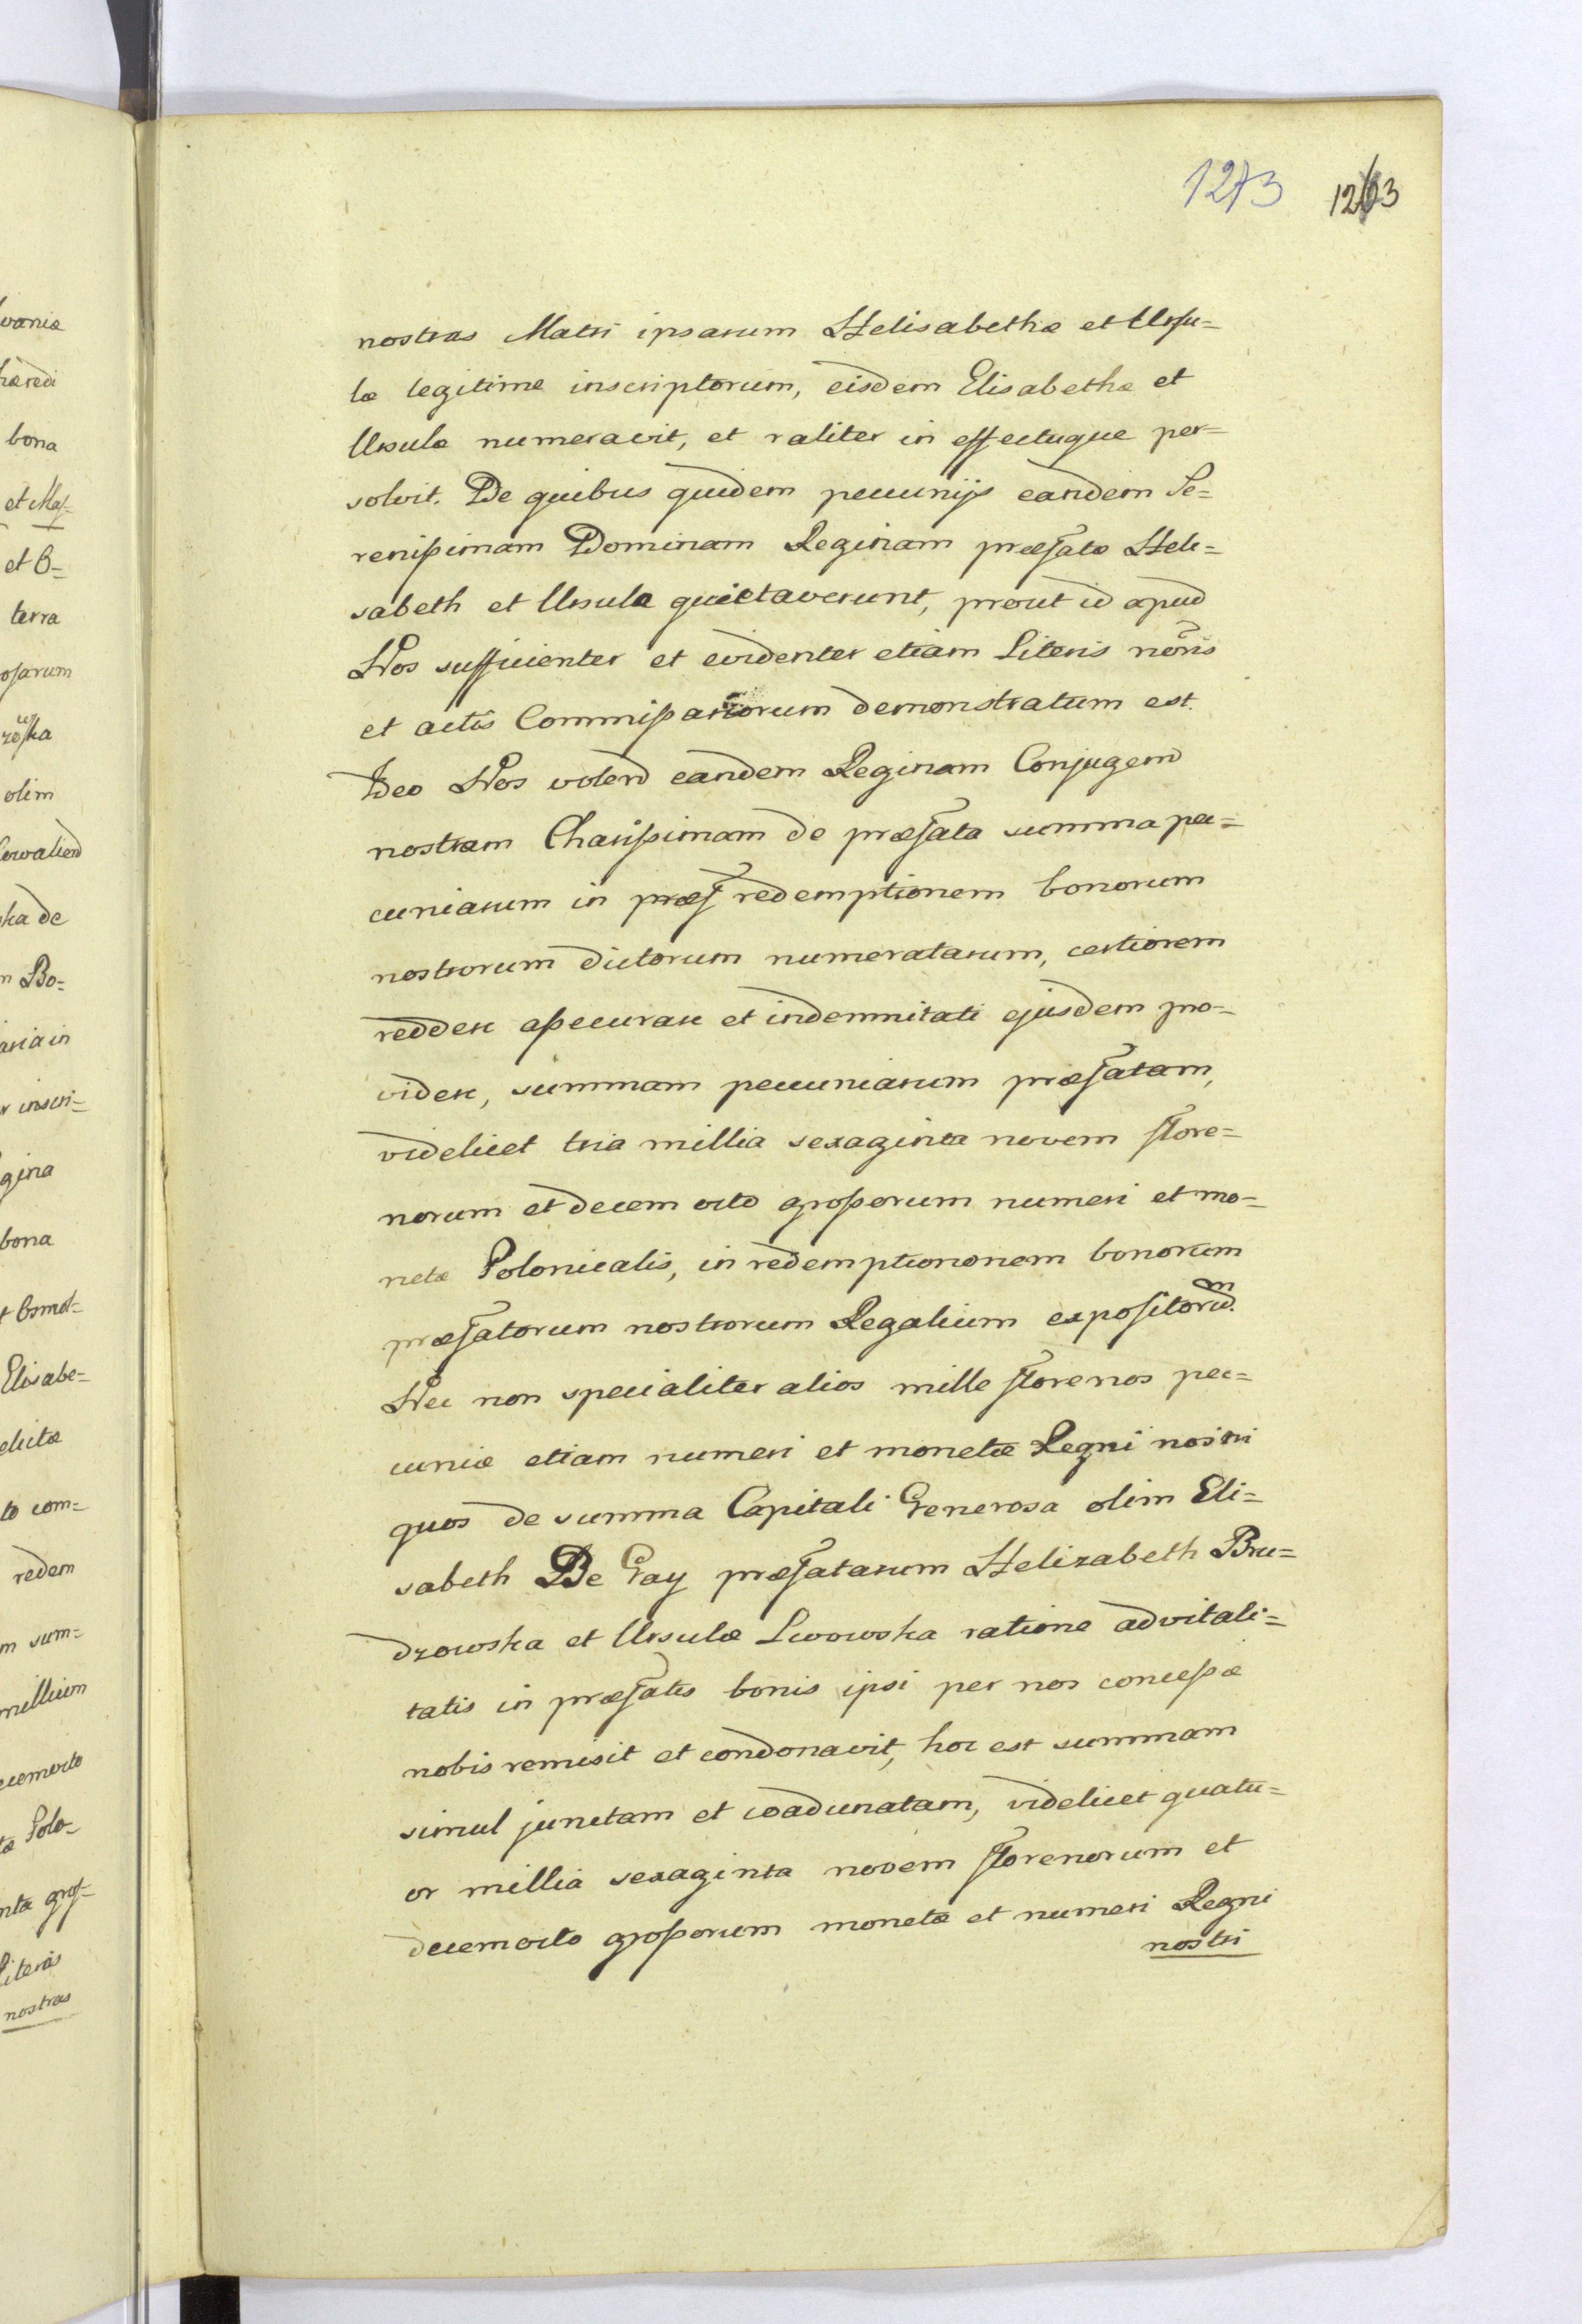 1273 1263
nostras Matri ipsarum Helisabethæ et Ursu=
læ legitime inscriptorum, eisdem Elisabethæ et
Ursulæ numeravit, et raliter in effectuque per=
solvit. De quibus quidem pecunijs eandem Se=
renißimam Dominam Reginam præfatæ Heli=
sabeth et Ursula quietaverunt, prout id apud
Nos sufficienter et evidenter etiam Literis nõris
et actis Commißariorum demonstratum est.
Ideo Nos volend eandem Reginam Conjugem
nostram Charißimam de præfata summa pe=
cuniarum in præf redemptionem bonorum
nostrorum dictorum numeratarum, certiorem
reddere aßecurare et indemnitati ejusdem pro=
videre, summam pecuniarum præfatam,
videlicet tria millia sexaginta novem flore=
norum et decem octo großorum numeri et mo=
netæ Polonicalis, in redemptiononem bonorum
præfatorum nostrorum Regalium expositorum.
Nec non specialiter alios mille florenos pec=
uniæ etiam numeri et monetæ Regni nostri
quos de summa Capitali Generosa olim Eli=
sabeth De Gay præfatarum Helizabeth Bru=
dzowska et Ursulæ Lwowska ratione advitali=
tatis in præfatis bonis ipsi per nos conceßæ
nobis remisit et condonavit, hoc est summam
simul junctam et coadunatam, videlicet quatu=
or millia sexaginta novem florenorum et
decemocto großorum monetæ et numeri Regni
nostri